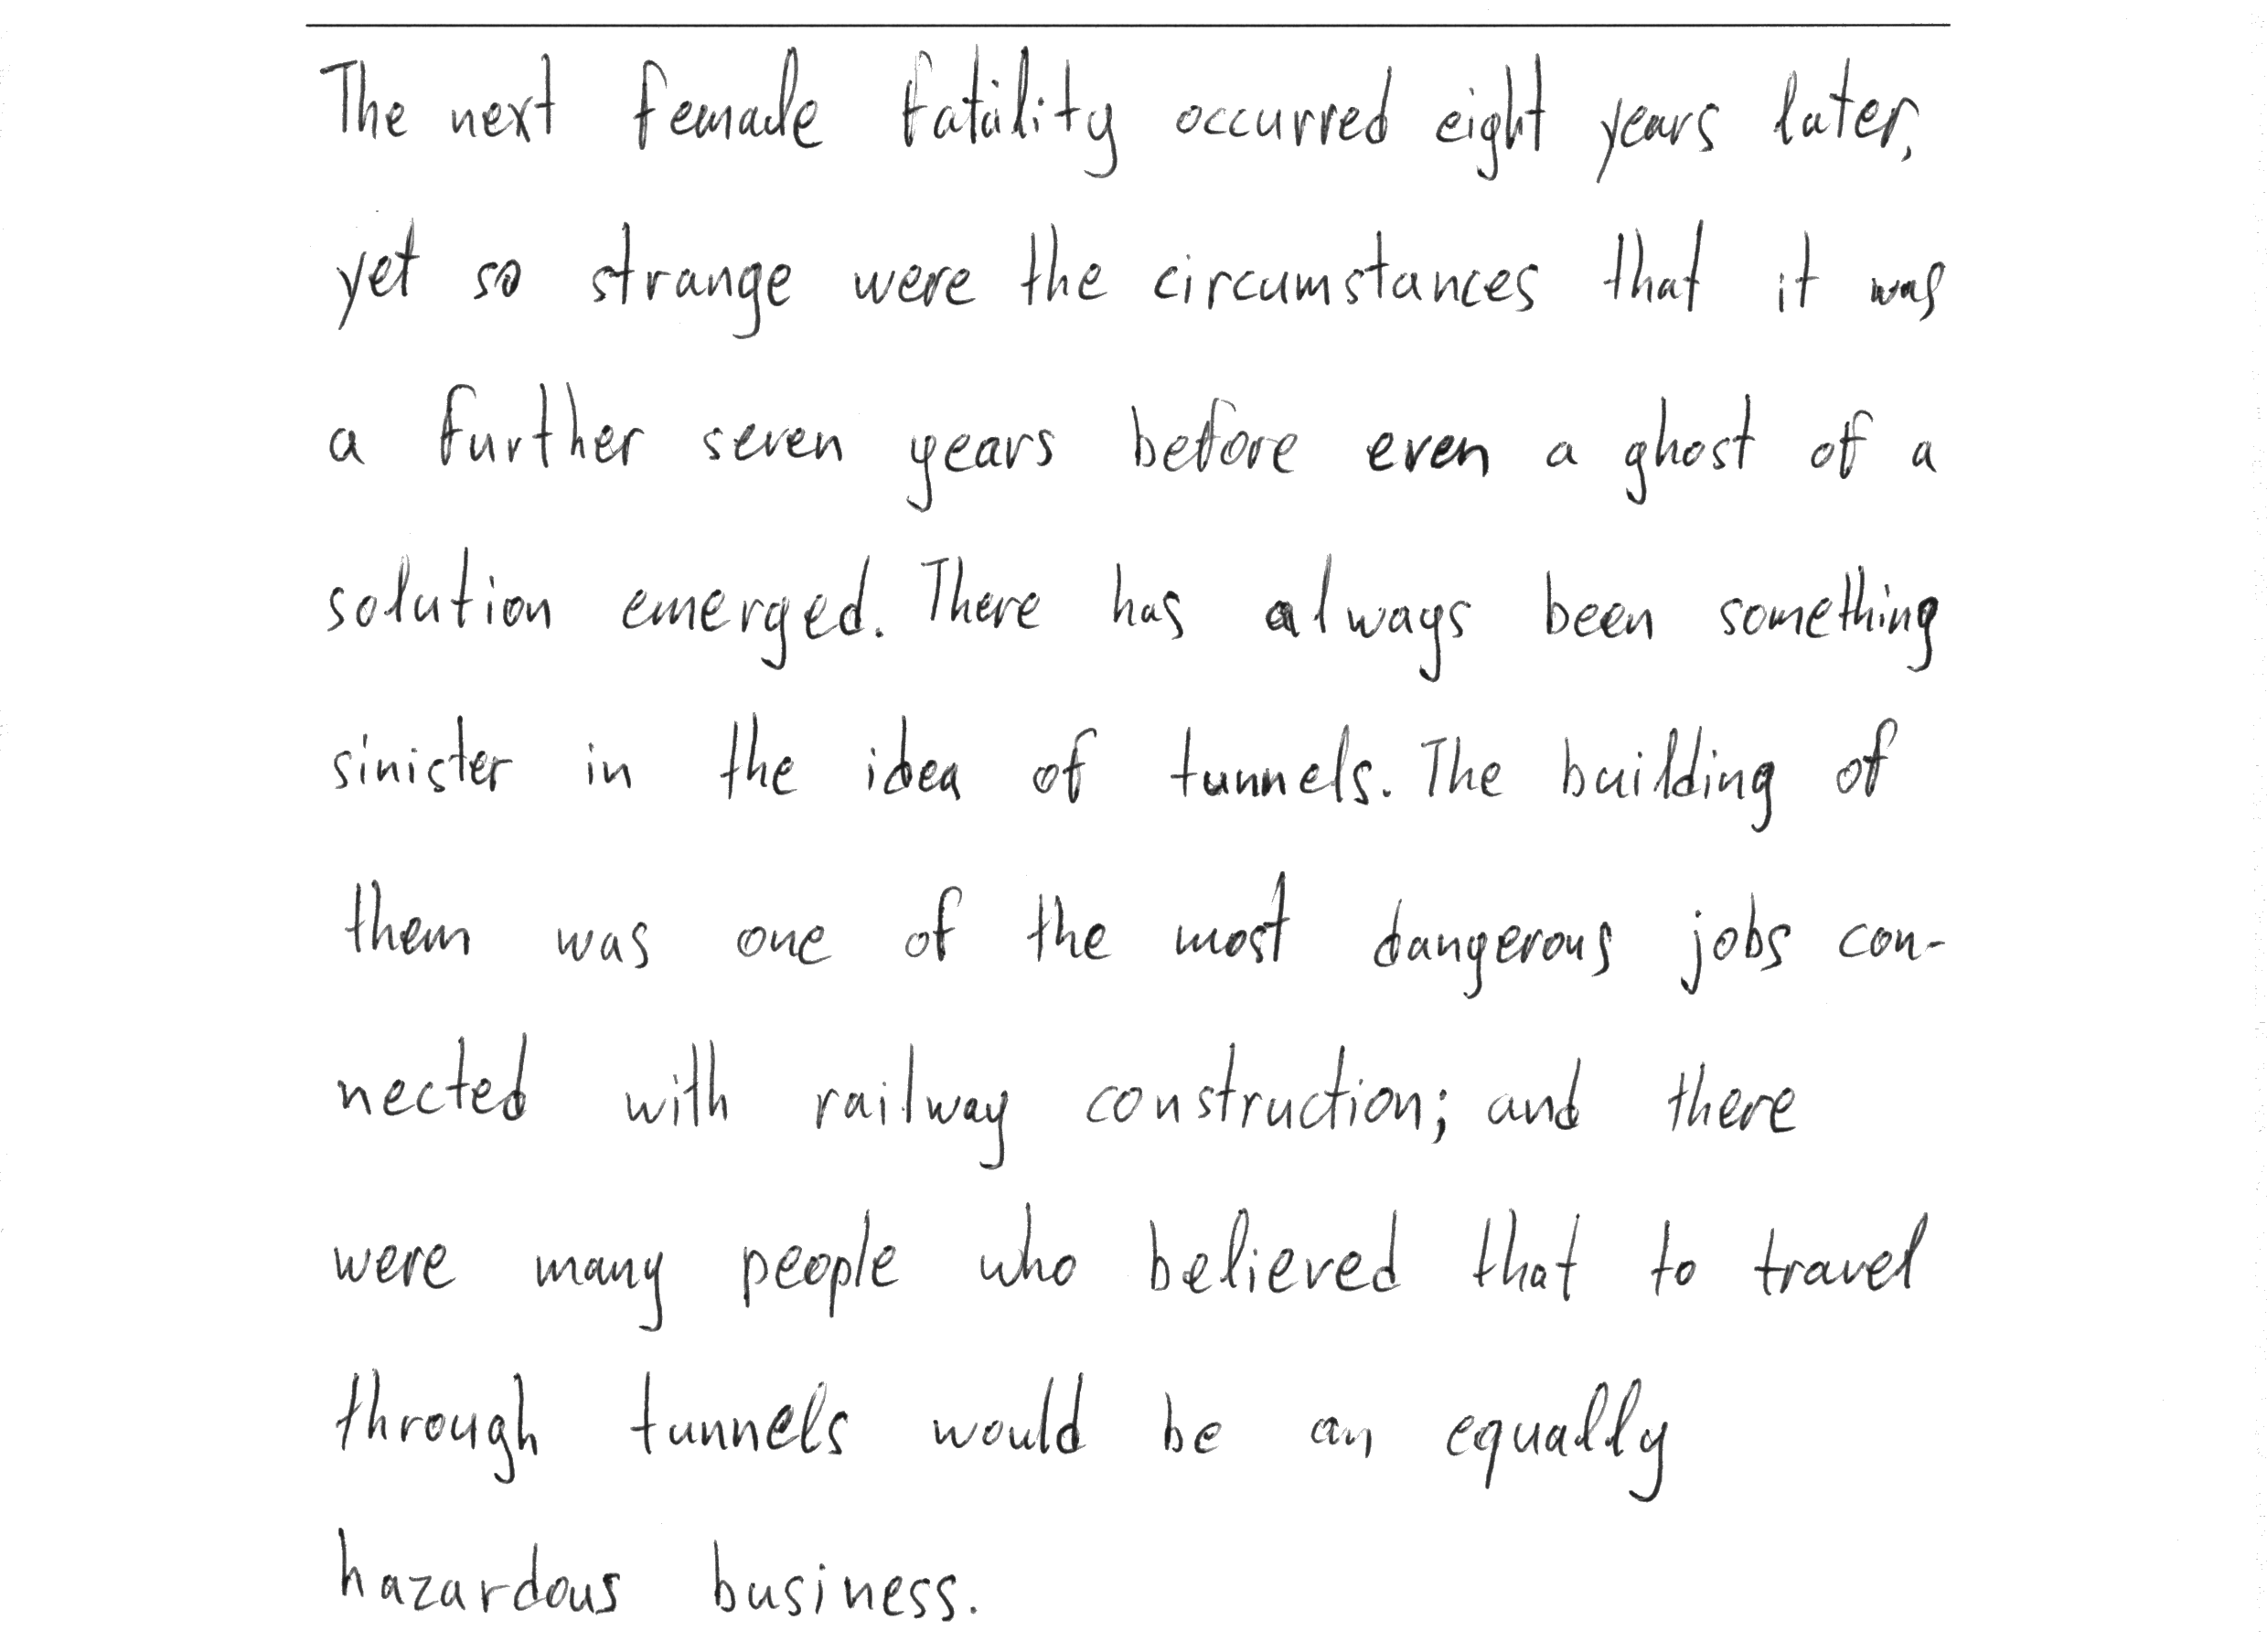 The next female fatality occurred eight years later,
yet so strange were the circumstances that it was
a further seven years before even a ghost of a
solution emerged. There has always been something
sinister in the idea of tunnels. The building of
them was one of the most dangerous jobs con-
nected with railway construction; and there
were many people who believed that to travel
through tunnels would be an equally
hazardous business.